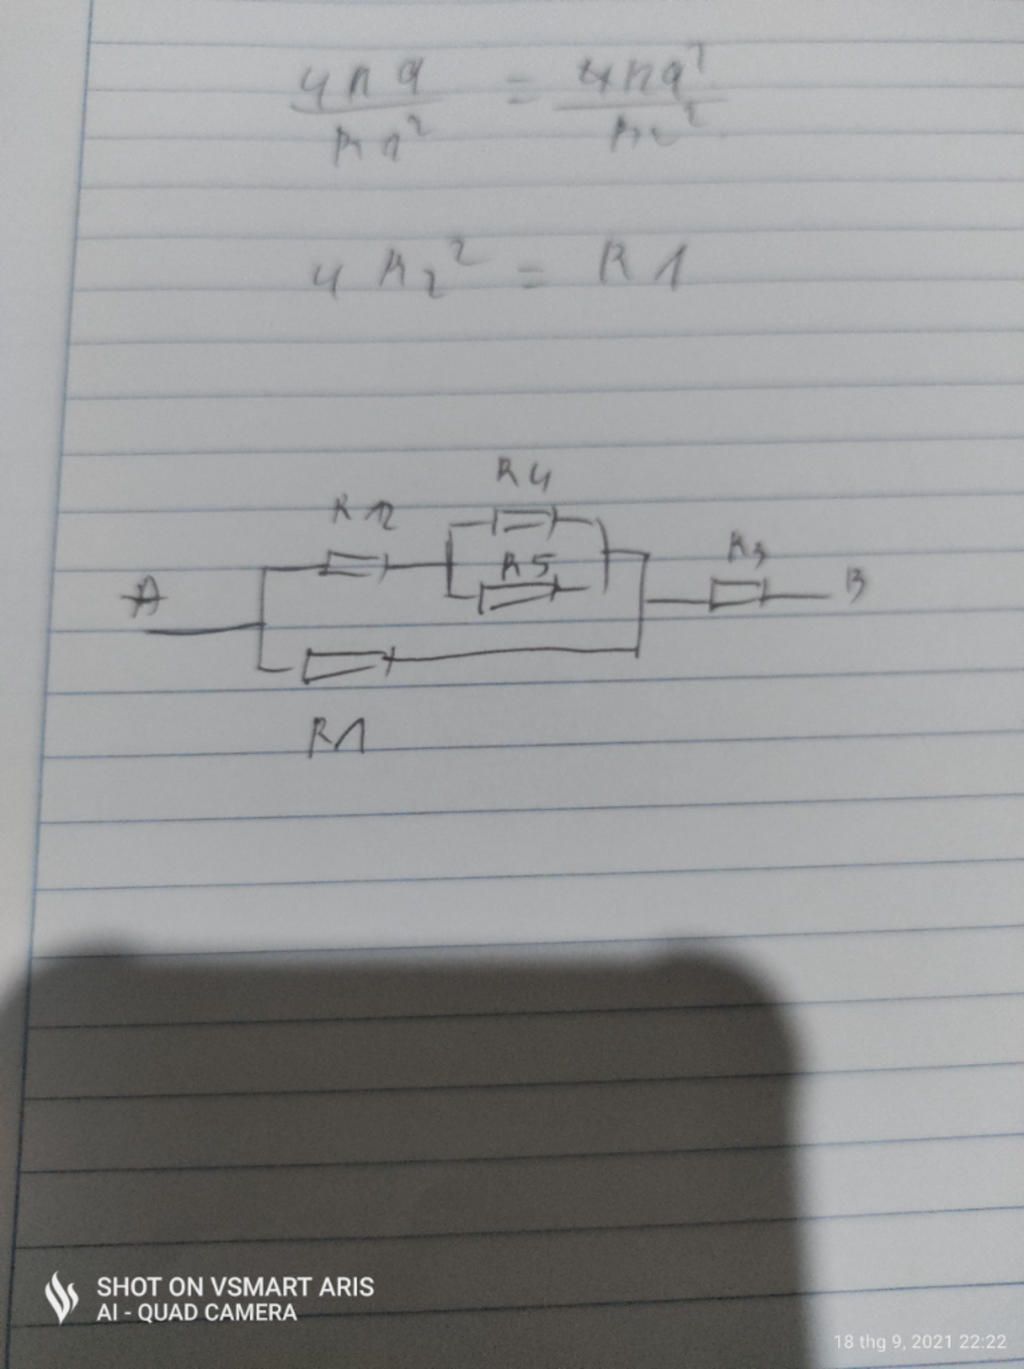 4R2² = R1
R4
R12
R5
R3
A
B
R1
SHOT ON VSMART ARIS
AI - QUAD CAMERA
18 thg 9, 2021 22:22